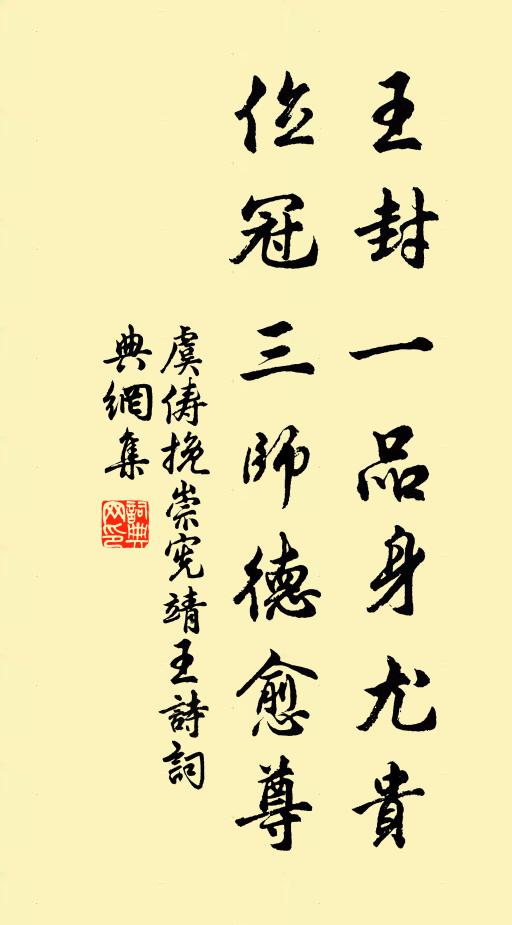 王封一品身尤貴
位冠三師德愈尊
虞儔挽崇憲靖王詩詞
典網集
詞典
网印